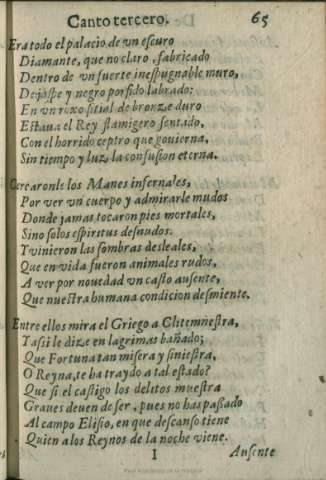 Canto tercero. 65
Era todo el palacio de vn escuro
Diamante, que no claro, fabricado
Dentro de vn fuerte inespugnable muro,
De jaspe y negro porfido labrado:
En vn roxo sitial de bronze duro
Estaua el Rey flamigero sentado,
Con el horrido ceptro que gouierna,
Sin tiempo y luz, la confusion eterna.
Cercaronle los Manes infernales,
Por ver vn cuerpo y admirarle mudos
Donde jamas tocaron pies mortales,
Sino solos espiritus desnudos.
Y vinieron las sombras desleales,
Que en vida fueron animales rudos,
A ver por nouedad vn casto ausente,
Que nuestra humana condicion desmiente.
Entre ellos mira el Griego a Clitemnestra,
Y assi le dize en lagrimas bañado;
Que Fortuna tan misera y siniestra,
O Reyna, te ha traydo a tal estado?
Que si el castigo los delitos muestra
Graues deuen de ser, pues no has passado
Al campo Elisio, en que descanso tiene
Quien a los Reynos de la noche viene.
I Ausente